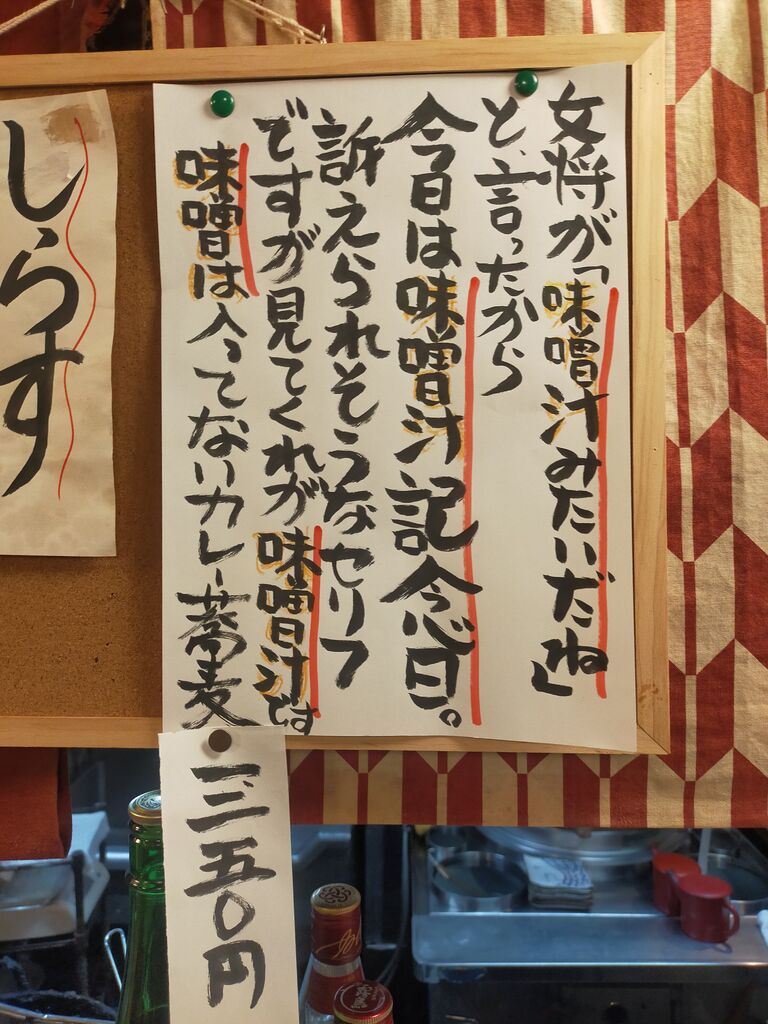 女将が「味噌汁みたいだね」
と、言ったから
今日は味噌汁記念日。
訴えられそうなセリフ
ですが見てくれが味噌汁です
味噌は入ってないカレー蕎麦
一、三五〇円
しらす